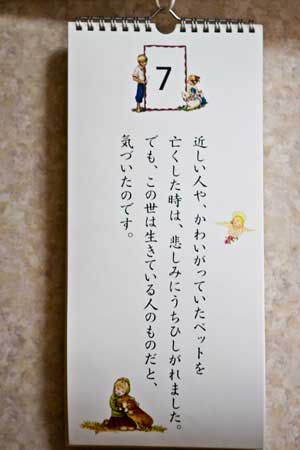 7
近しい人や、かわいがっていたペットを
亡くした時は、悲しみにうちひしがれました。
でも、この世は生きている人のものだと、
気づいたのです。